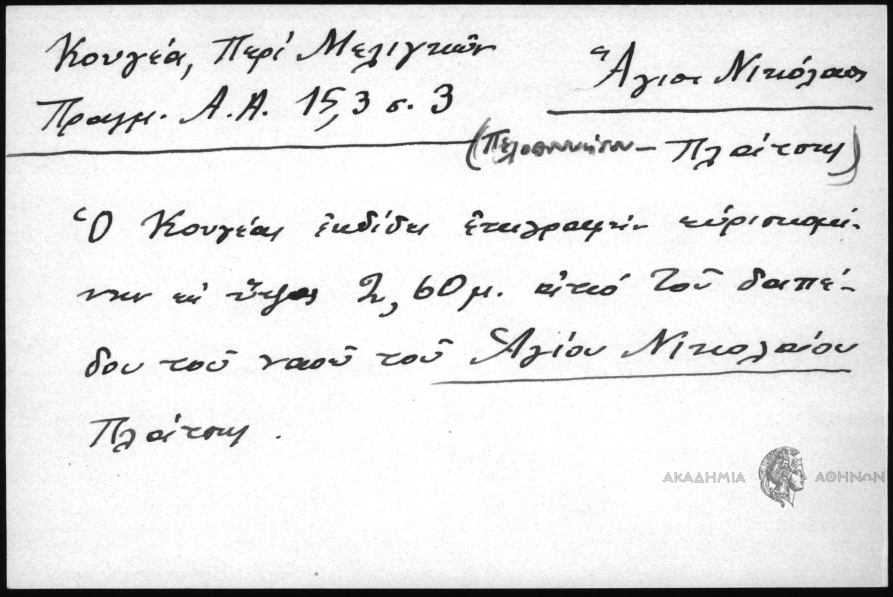 Κουγέα, Περί Μελιγκῶν
Πραγμ. Α.Α. 15,3 σ. 3
Ἅγιος Νικόλαος
(Πελοποννήσου – Πλάτσης)
Ὁ Κουγέας ἐκδίδει ἐπιγραφὴν εὑρισκομέ-
νην εἰς ὕψος 2,60 μ. ἀπό τοῦ δαπέ-
δου τοῦ ναοῦ τοῦ Ἁγίου Νικολάου
Πλάτσης.
ΑΚΑΔΗΜΙΑ ΑΘΗΝΩΝ